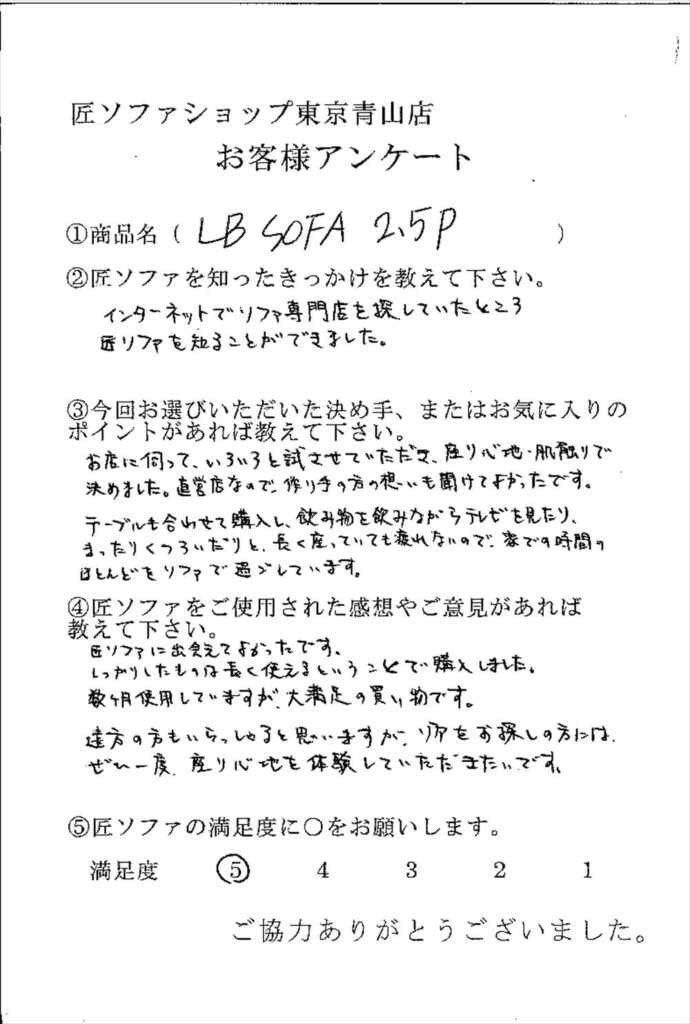 匠ソファショップ東京青山店
お客様アンケート
①商品名（ LB SOFA 2.5P ）
②匠ソファを知ったきっかけを教えて下さい。
インターネットでソファ専門店を探していたところ
匠ソファを知ることができました。
③今回お選びいただいた決め手、またはお気に入りの
ポイントがあれば教えて下さい。
お店に伺って、いろいろと試させていただき、座り心地・肌触りで
決めました。直営店なので、作り手の方の想いも聞けてよかったです。
テーブルも合わせて購入し、飲み物を飲みながらテレビを見たり、
まったりくつろいだりと、長く座っていても疲れないので、家での時間の
ほとんどをソファで過ごしています。
④匠ソファをご使用された感想やご意見があれば
教えて下さい。
匠ソファに出会えてよかったです。
しっかりしたものは長く使えるということで購入しました。
数ヶ月使用していますが、大満足の買い物です。
遠方の方もいらっしゃると思いますが、ソファをお探しの方には、
ぜひ一度、座り心地を体験していただきたいです。
⑤匠ソファの満足度に○をお願いします。
満足度 5 4 3 2 1
ご協力ありがとうございました。